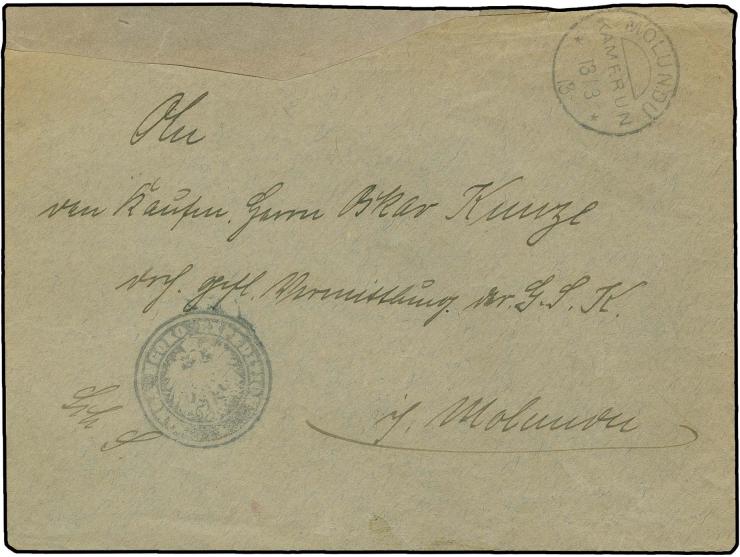 MOLUNDU
KAMERUN
13/3
13
An
den Kaufm. Herrn Oskar Kunze
drch. gefl. Vermittlung der G. S. K.
i/. Molundu